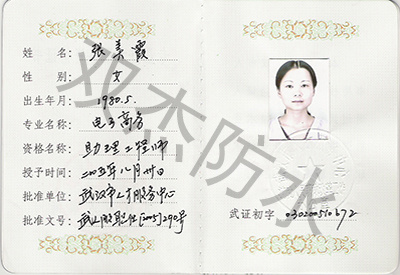 姓 名: 张美霞
性 别: 女
出生年月: 1980.5.
专业名称: 电子商务
资格名称: 助理工程师
授予时间: 二00五年八月卅日
批准单位: 武汉市人才服务中心
批准文号: [2005]290号
武证初字 03020051b672
双杰防水